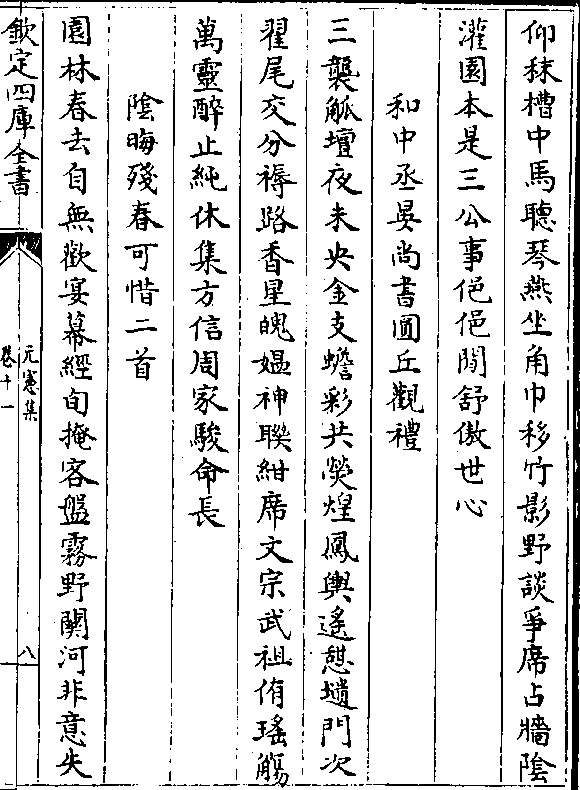 仰秣槽中馬聽琴燕坐角巾移竹影野談爭席占牆陰
灌園本是三公事俋俋閒舒傲世心
和中丞吳尚書圜丘觀禮
三襲觚壇夜未央金支蟾彩共熒煌鳳輿遙憇壝門次
翟尾交分褥路香星魄媼神聯紺席文宗武祖侑瑤觴
萬靈醉止純休集方信周家駿命長
陰晦殘春可惜二首
園林春去自無歡宴幕經旬掩客盤霧野關河非意失
欽定四庫全書
元憲集
卷十一
八